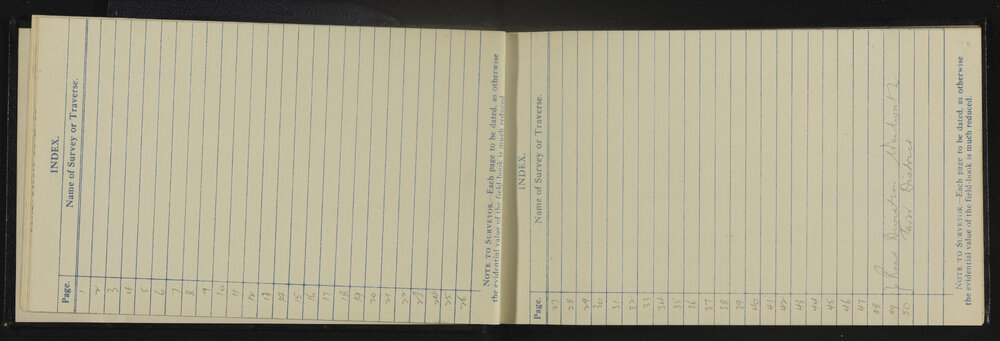 INDEX.
Page. Name of Survey or Traverse.
1
2
3
4
5
6
7
8
9
10
11
12
13
14
15
16
17
18
19
20
21
22
23
24
25
26
NOTE TO SURVEYOR.—Each page to be dated, as otherwise
the evidential value of the field-book is much reduced.
INDEX.
Page. Name of Survey or Traverse.
27
28
29
30
31
32
33
34
35
36
37
38
39
40
41
42
43
44
45
46
47
48
49 Road Deviation
50 District
NOTE TO SURVEYOR.—Each page to be dated, as otherwise
the evidential value of the field-book is much reduced.